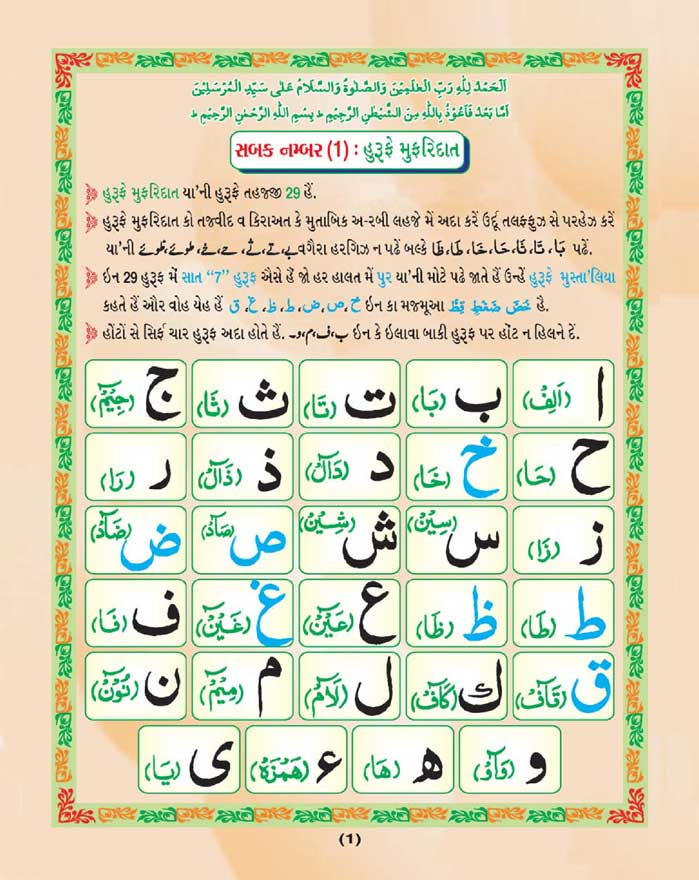 اَلْحَمْدُ لِلّٰهِ رَبِّ الْعٰلَمِيْنَ وَالصَّلٰوةُ وَالسَّلَامُ عَلٰى سَيِّدِ الْمُرْسَلِيْنَ
اَمَّا بَعْدُ فَاَعُوْذُ بِاللّٰهِ مِنَ الشَّيْطٰنِ الرَّجِيْمِ ط بِسْمِ اللّٰهِ الرَّحْمٰنِ الرَّحِيْمِ ط
સબક નમ્બર (1) : હુરૂફે મુફરિદાત
હુરૂફે મુફરિદાત યા'ની હુરૂફે તહજ્જી 29 હેં.
હુરૂફે મુફરિદાત કો તજવીદ વ કિરાઅત કે મુતાબિક અ-રબી લહજે મેં અદા કરેં ઉર્દૂ તલફ્ફુઝ સે પરહેઝ કરેં
યા'ની بے، تے، ثے، حے، خے، طوئے، ظوئے વગૈરા હરગિઝ ન પઢેં બલ્કે بَا، تَا، ثَا، حَا، خَا، طَا، ظَا પઢેં.
ઇન 29 હુરૂફ મેં સાત “7” હુરૂફ ઐસે હેં જો હર હાલત મેં પુર યા'ની મોટે પઢે જાતે હેં ઉન્હેં હુરૂફે મુસ્તા'લિયા
કહતે હેં ઔર વોહ યેહ હેં خ، ص، ض، ط، ظ، غ، ق ઇન કા મજમૂઆ خُصَّ ضَغْطٍ قِظْ હે.
હોંટોં સે સિર્ફ ચાર હુરૂફ અદા હોતે હેં. ب، ف، م، و۔ ઇન કે ઇલાવા બાકી હુરૂફ પર હોંટ ન હિલને દેં.
ا (اَلِفْ) ب (بَا) ت (تَا) ث (ثَا) ج (جِيْمْ)
ح (حَا) خ (خَا) د (دَالْ) ذ (ذَالْ) ر (رَا)
ز (زَا) س (سِيْنْ) ش (شِيْنْ) ص (صَادْ) ض (ضَادْ)
ط (طَا) ظ (ظَا) ع (عَيْنْ) غ (غَيْنْ) ف (فَا)
ق (قَافْ) ك (كَافْ) ل (لَامْ) م (مِيْمْ) ن (نُوْنْ)
و (وَاوْ) ه (هَا) ء (هَمْزَهْ) ى (يَا)
(1)